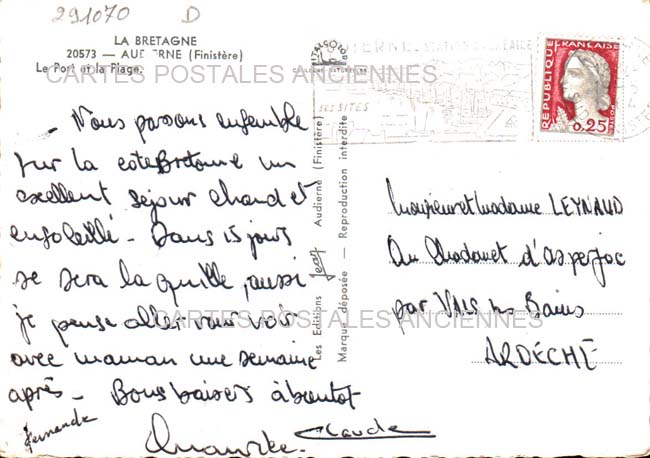 291070 D
LA BRETAGNE
20573 — AUDIERNE (Finistère)
Le Port et la Plage.
CARTES POSTALES ANCIENNES
— Nous passons ensemble
sur la côte Bretonne un
excellent séjour chaud et
ensoleillé - Dans 15 jours
se sera la quille, aussi
je pense aller vous voir
avec maman une semaine
après - Bons baisers à bientôt
Fernande
Maurice
Claude
Les Editions Jean Audierne (Finistère)
Marque déposée — Reproduction interdite
SES SITES
REPUBLIQUE FRANÇAISE
POSTES
0,25
Monsieur et Madame LEYNAUD
Au Chadouet d'Asperjoc
par VALS les Bains
ARDÈCHE
CARTES POSTALES ANCIENNES